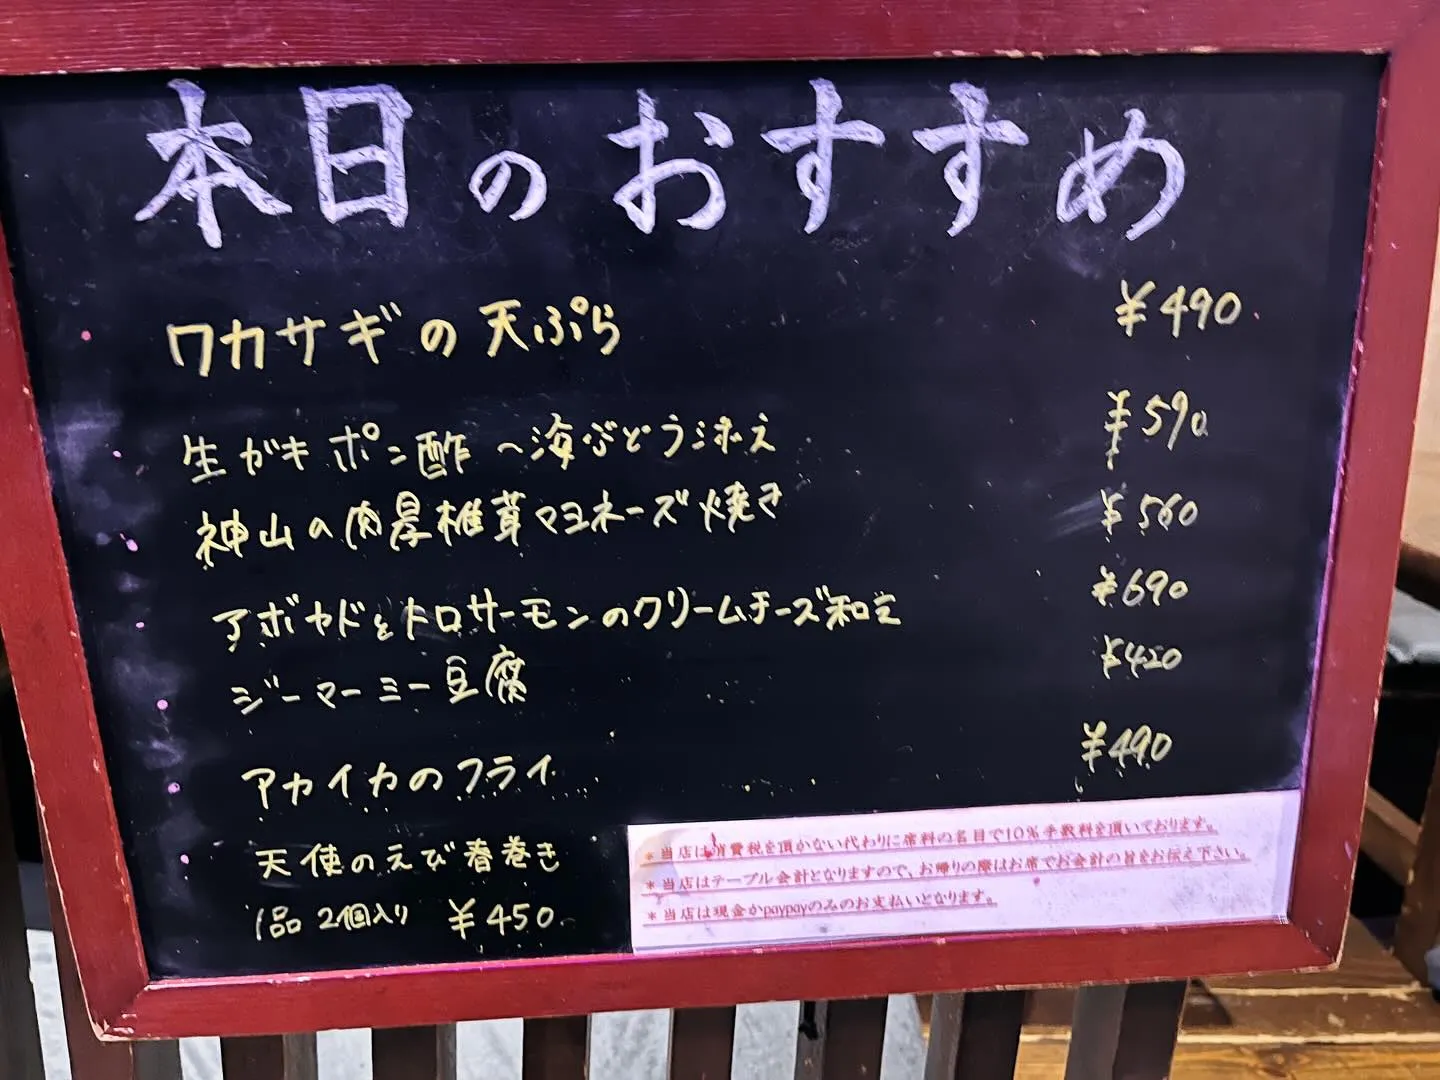 本日のおすすめ
ワカサギの天ぷら ¥490
生ガキポン酢 ~海ぶどう添え ¥590
神山の肉厚椎茸マヨネーズ焼き ¥560
アボカドとトロサーモンのクリームチーズ和え ¥690
ジーマーミー豆腐 ¥420
アカイカのフライ ¥490
天使のえび春巻き
1品 2個入り ¥450
*当店は消費税を頂かない代わりに席料の名目で10%手数料を頂いております。
*当店はテーブル会計となりますので、お帰りの際はお席でお会計の旨をお伝え下さい。
*当店は現金かpaypayのみのお支払いとなります。